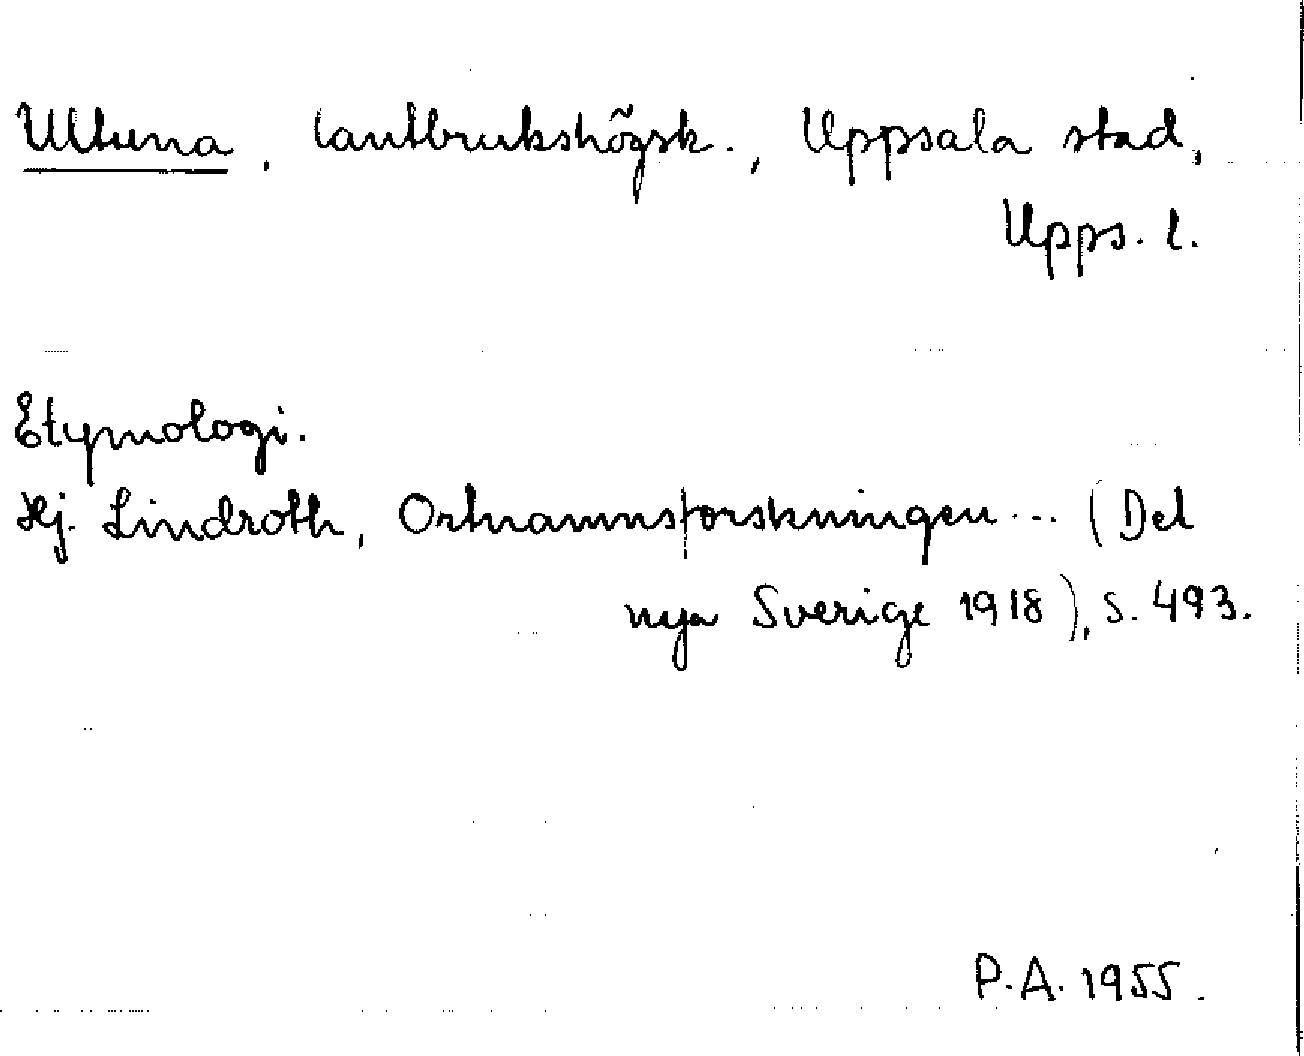 Ultuna, lantbrukshögsk., Uppsala stad,
Upps. l.
Etymologi.
Hj. Lindroth, Ortnamnsforskningen... (Det
nya Sverige 1918), s. 493.
P.A. 1955.